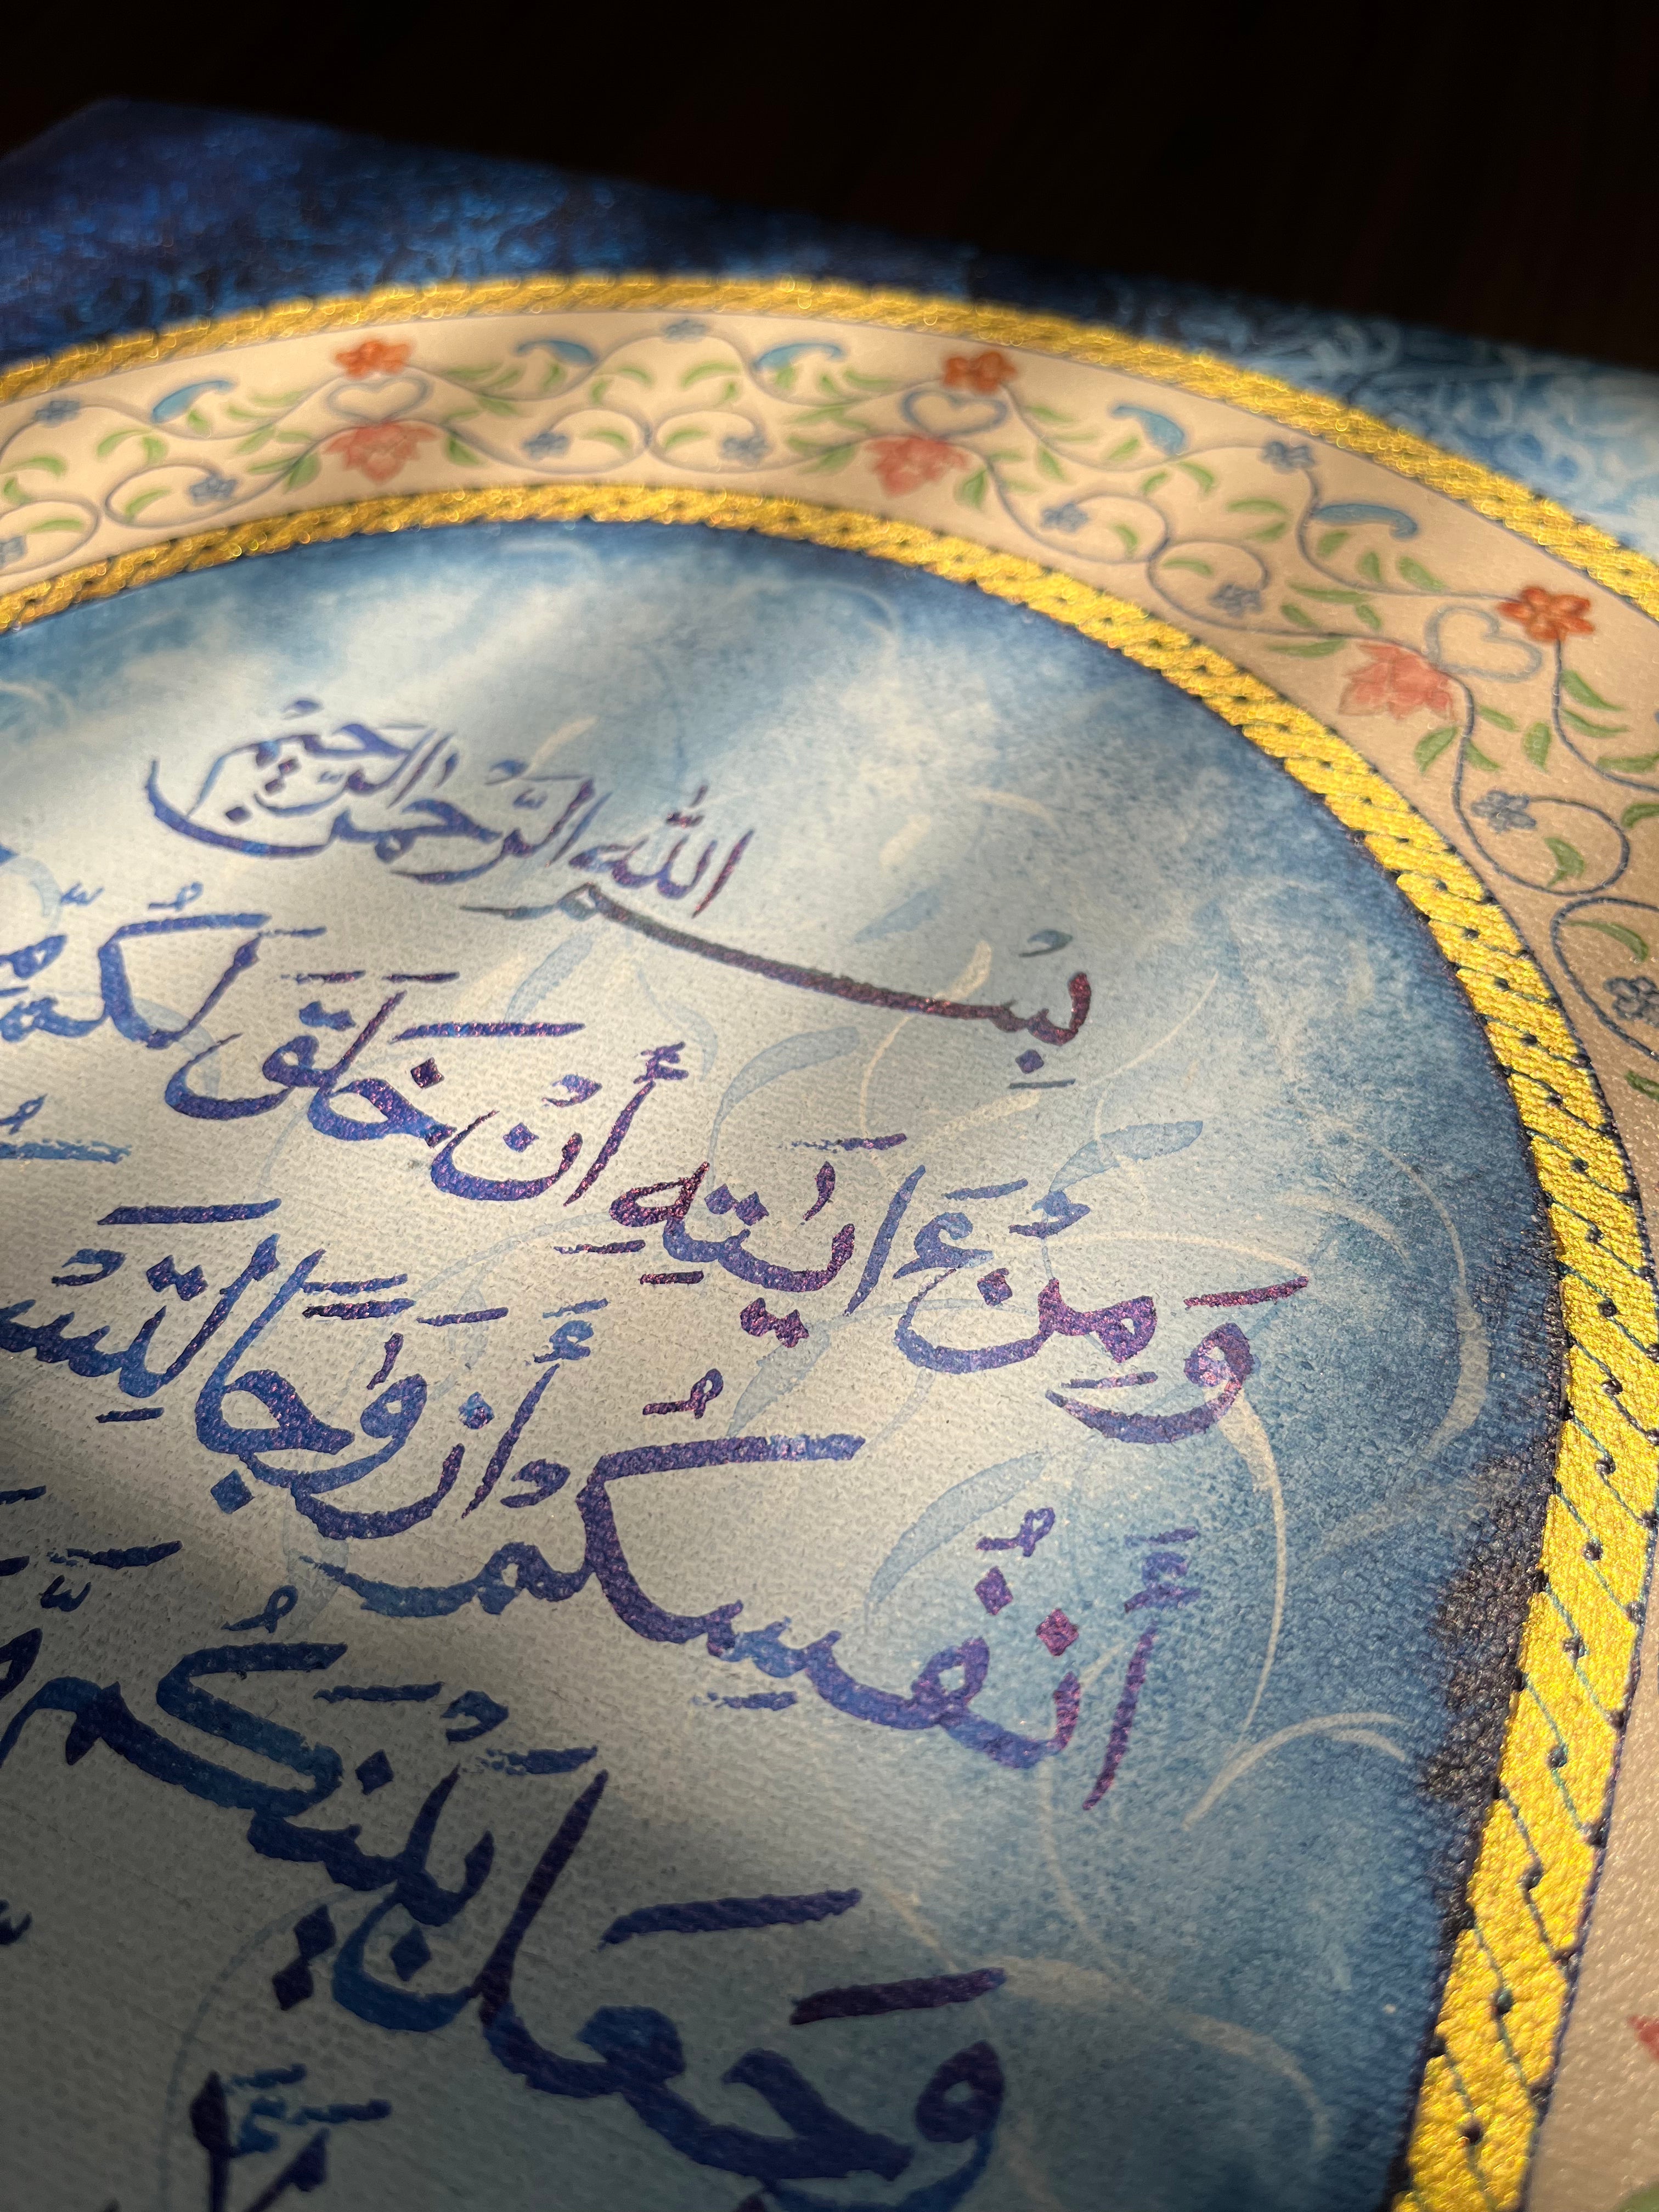 بِسْمِ اللّٰهِ الرَّحْمٰنِ الرَّحِيْمِ
وَمِنْ ءَايَٰتِهِ أَنْ خَلَقَ لَكُم
أَنْفُسِكُمْ أَزْوَٰجًا
وَجَعَلَ بَيْنَكُم